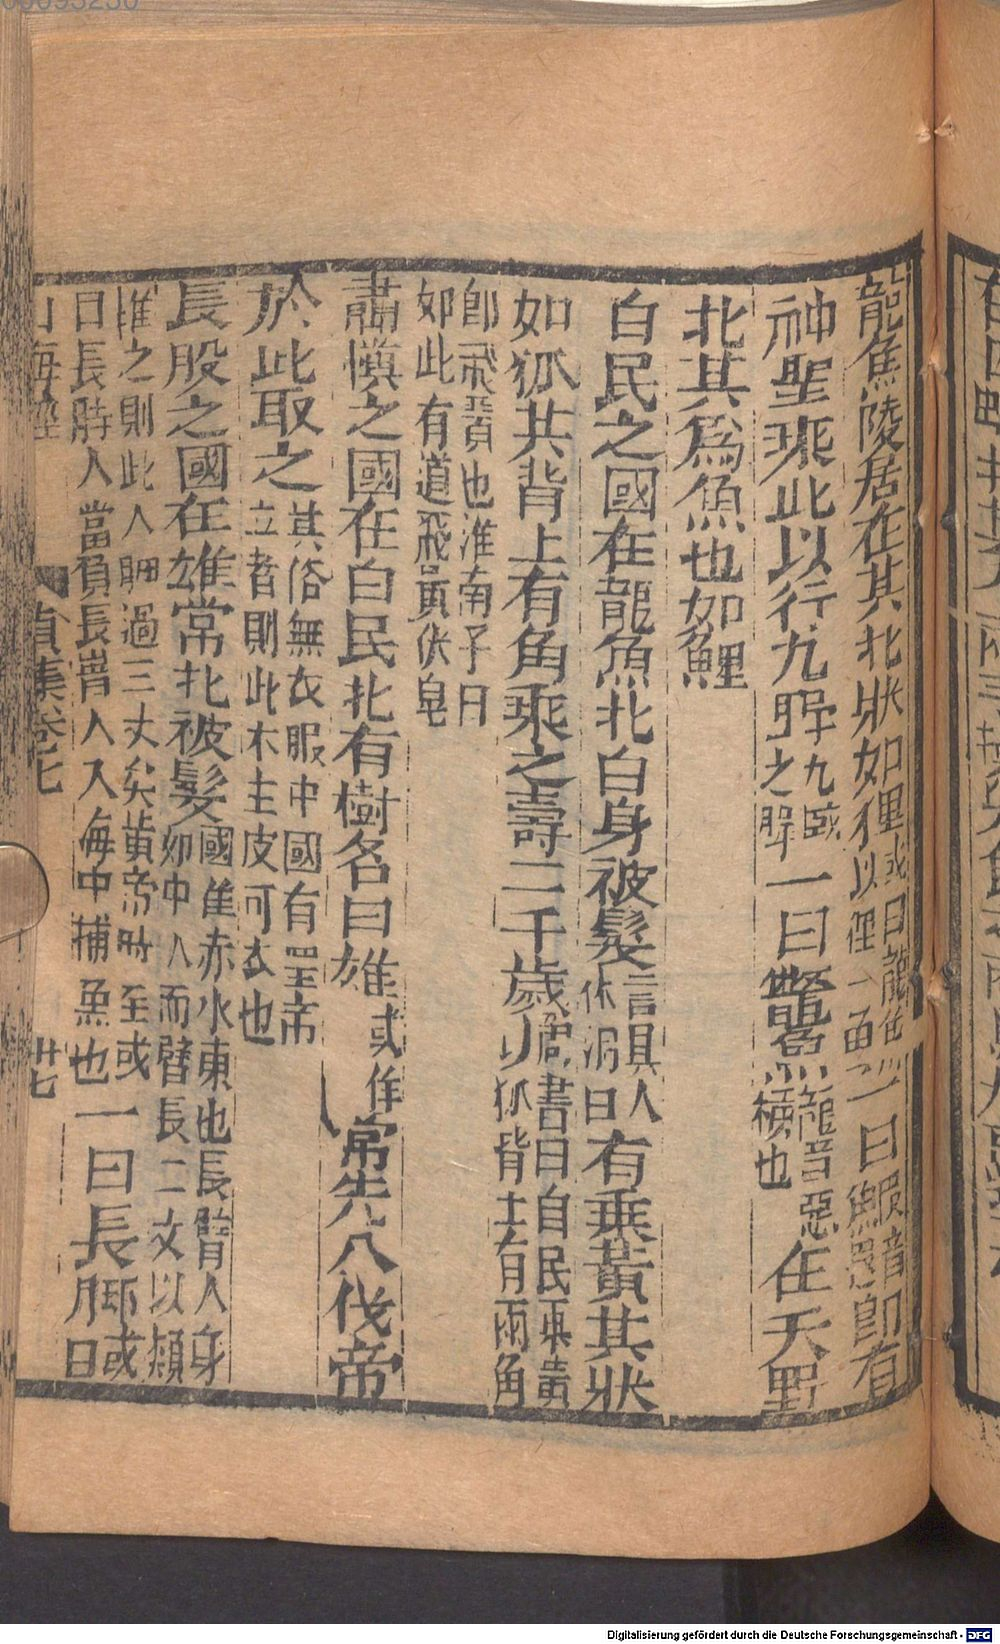 龍魚陵居在其北狀如狸或曰龍魚似狸一角一曰鰕音即有
神聖乘此以行九野九域之野一曰鱉魚鱉音惡橫也在夭野
北其爲魚也如鯉
白民之國在龍魚北白身被髮言其人体洞白有乗黃其狀
如狐其背上有角乘之壽二千歲周書曰白民乗黃似狐背上有兩角
卽飛黃也淮南子曰
如此有道飛黃伏皂
肅慎之國在白民北有樹名曰雄或作常先八伐帝
於此取之其俗無衣服中國有聖帝立者則此木生皮可衣也
長股之國在雄常北被髮國在赤水東也長臂人身如中人而臂長二丈以類
推之則此人脚過三丈矣黃帝時至或
曰長脚人常負長臂人入海中捕魚也一曰長脚或曰
山海經 貞集卷七 廿七
Digitalisierung gefördert durch die Deutsche Forschungsgemeinschaft - DFG